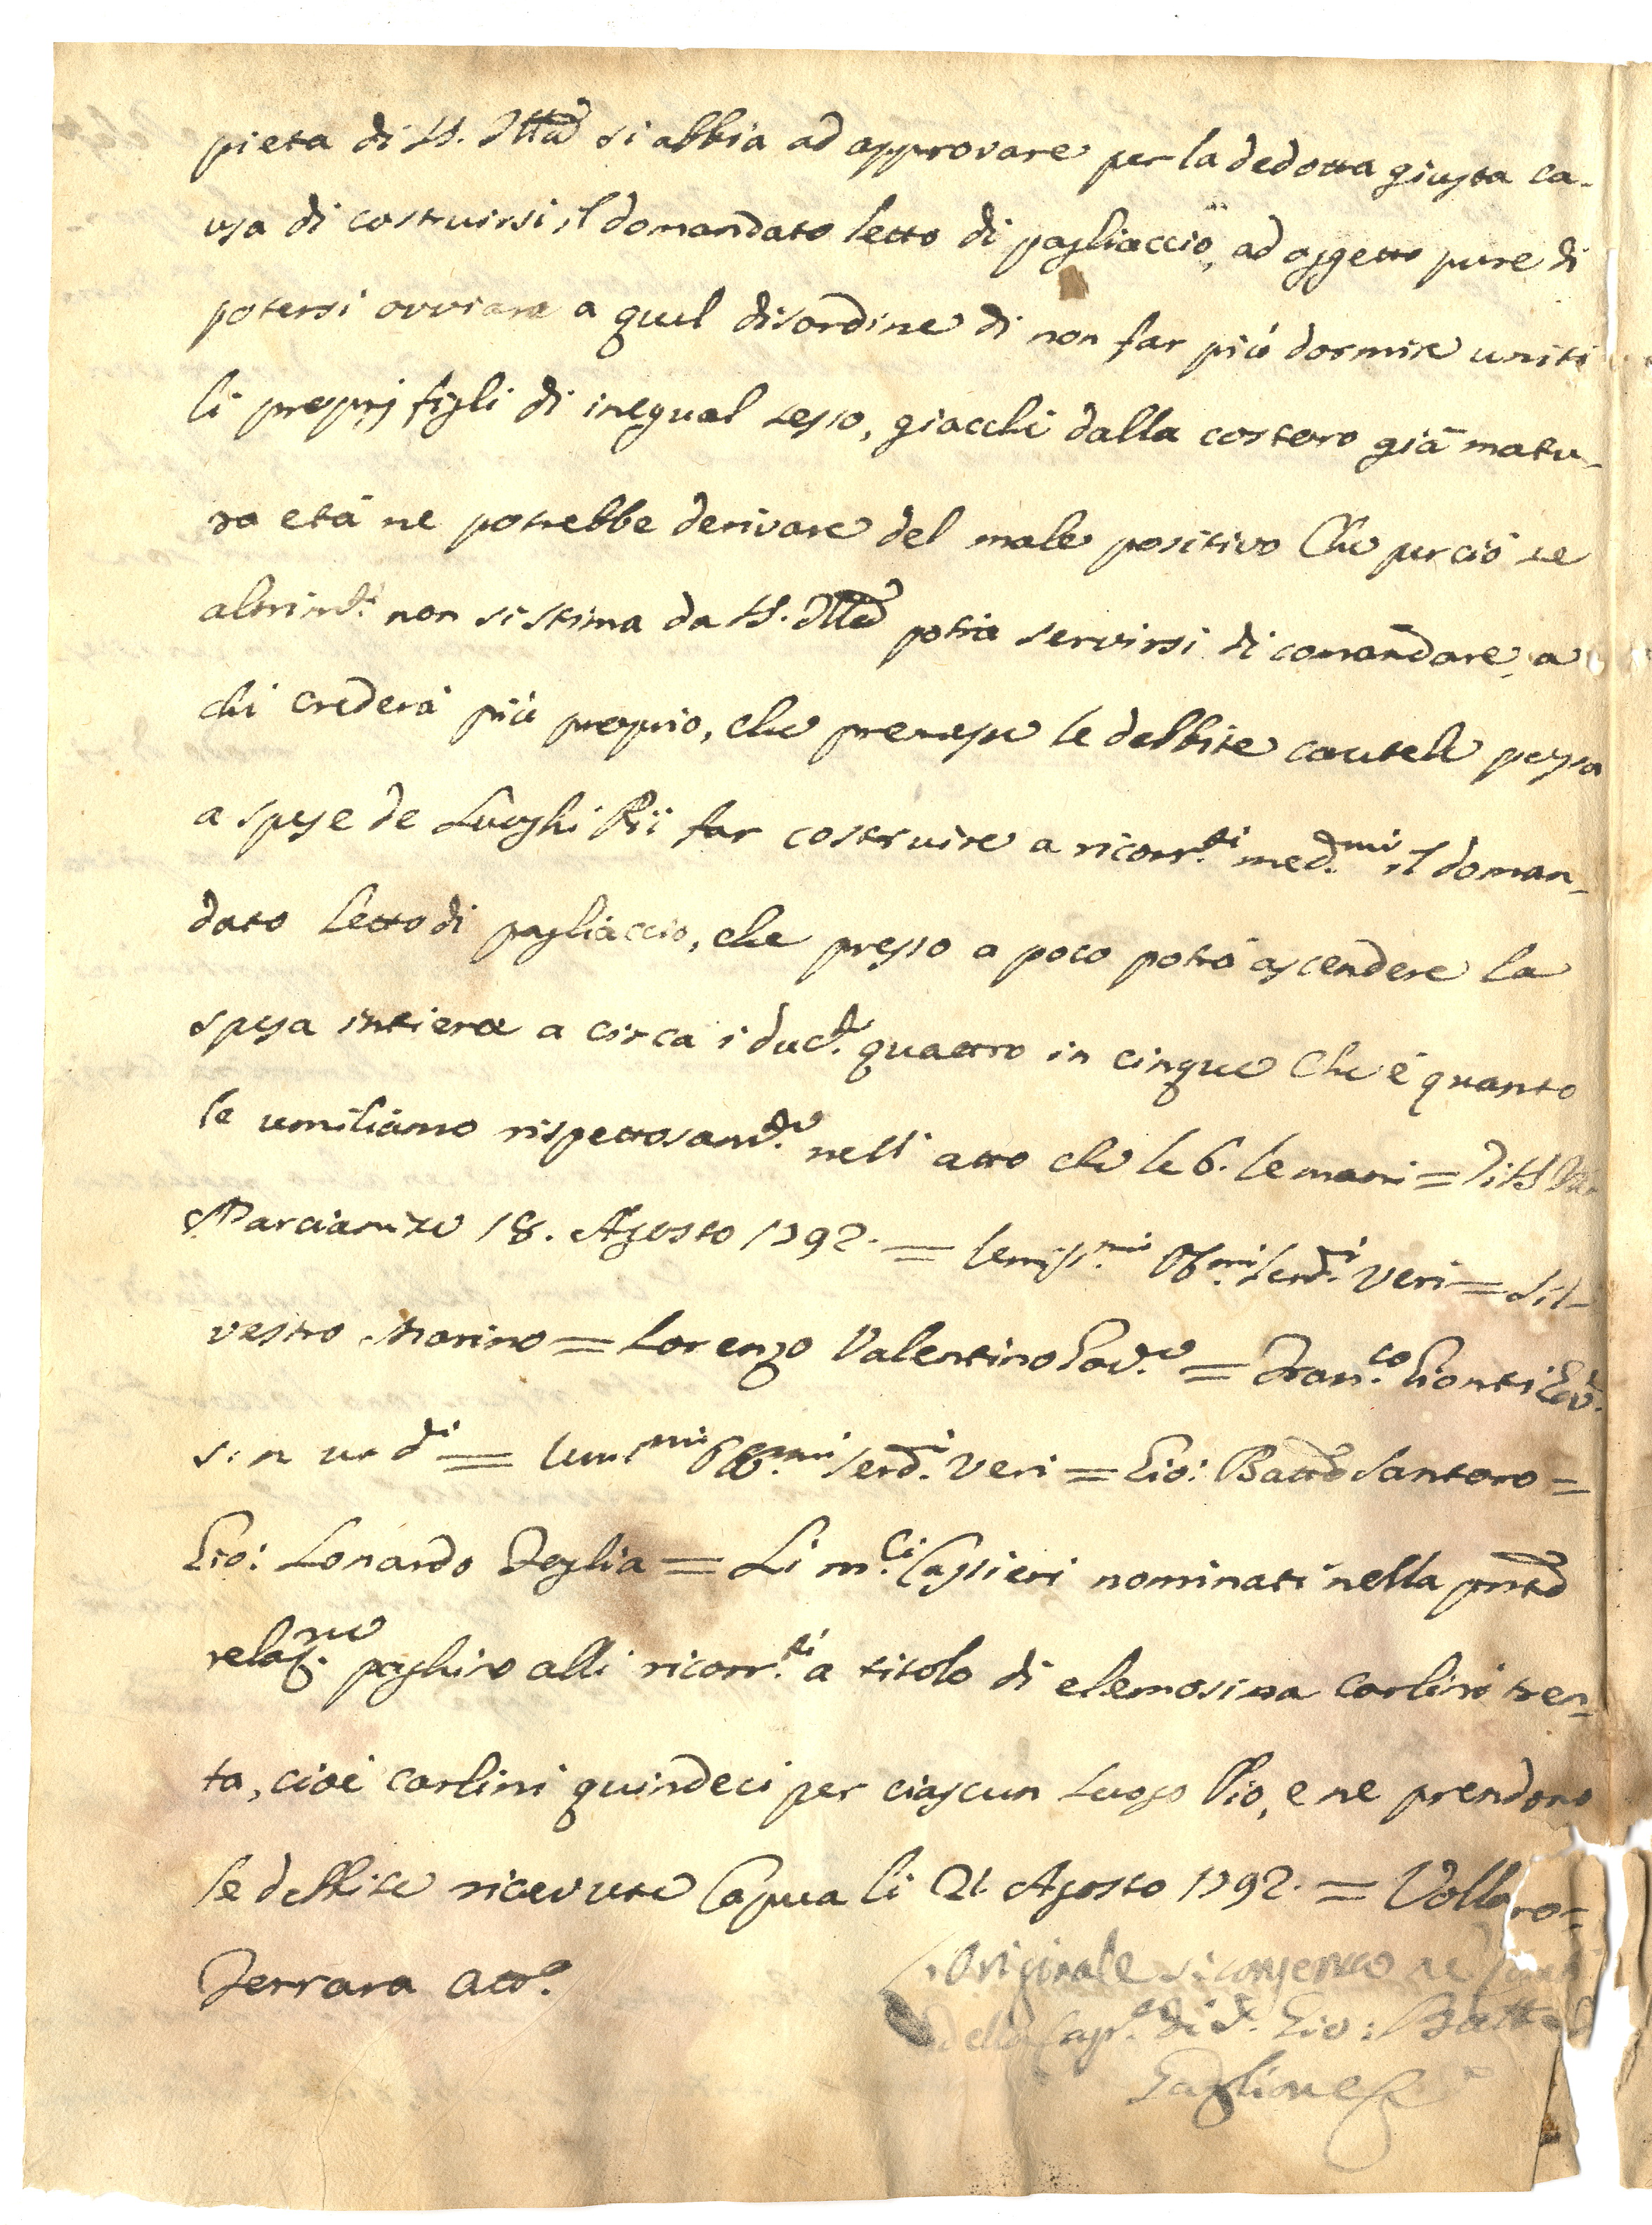 pieta di VS. Ill.ma si abbia ad approvare per la dedotta giusta ca-
usa di costruirsi il domandato letto di pagliaccio, ad oggetto pure di
potersi ovviare a quel disordine di non far più dormire uniti
li proprj figli di inegual sesso, giacchè dalla costoro già matu-
ra età ne potrebbe derivare del male positivo Che perciò se
altrim.ti non si stima da VS. Ill.ma potria servirsi di comandare, a
chi crederà più proprio, che premesse le debbite cautele possa
a spese de Luoghi Pii far costruire a ricorr.ti med.mi il doman-
dato letto di pagliaccio, che presso a poco potrà ascendere la
spesa intiera a circa i duc.ti quattro in cinque Che è quanto
le umiliamo rispettosam.te nell' atto che le b. le mani = Di VS
Marcianise 18. Agosto 1792. = Umiss.mi Obb.mi Serd.i Veri = Sil-
vestro Marino = Lorenzo Valentino Gov.e = Fran.co Gionti Gov.
Umi.mi Obb.mi Serd.i Veri = Gio: Batta Santoro =
Gio: Lonardo Foglia = Li m.ci Cassieri nominati nella pnte
relaz.ne paghino alli ricorr.ti a titolo di elemosina carlini tren-
ta, cioè carlini quindeci per ciascun Luogo Pio, e ne prendono
le debbite ricevute Capua li 21. Agosto 1792. = Vollaro =
Ferrara Att.o
Originale si conserva
della Cap.a di S. Gio: Batta
Taglione